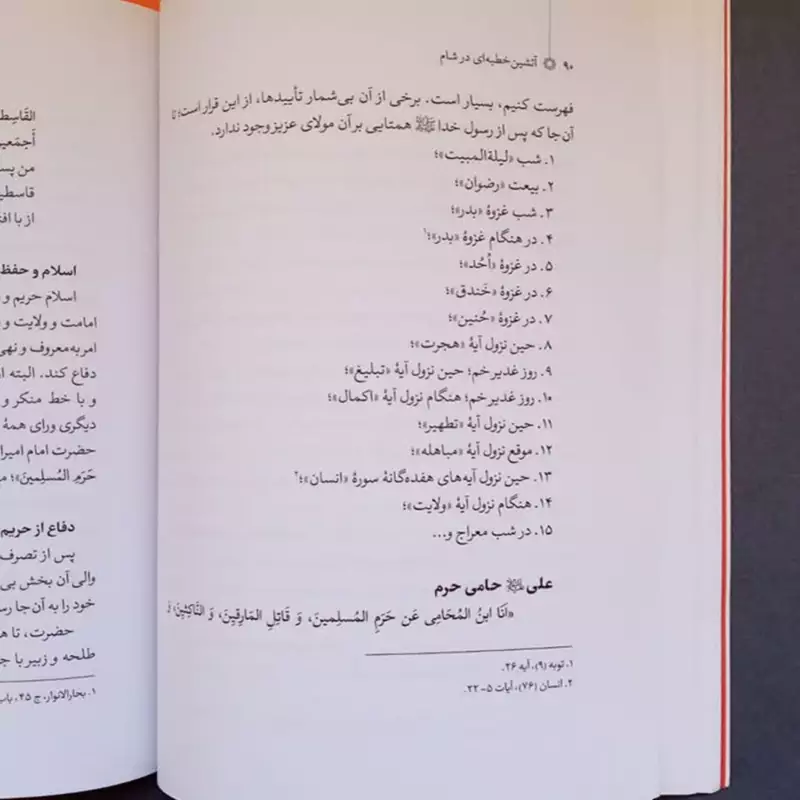 ۹۰ آتشین‌خطبه‌ای در شام
فهرست کنیم، بسیار است. برخی از آن بی‌شمار تأییدها، از این قرار است؛ تا
آن‌جا که پس از رسول خدا ﷺ همتایی بر آن مولای عزیز وجود ندارد.
۱. شب «لیلة‌المبیت»؛
۲. بیعت «رضوان»؛
۳. شب غزوهٔ «بدر»؛
۴. در هنگام غزوهٔ «بدر»؛۱
۵. در غزوهٔ «اُحُد»؛
۶. در غزوهٔ «خَندق»؛
۷. در غزوهٔ «حُنین»؛
۸. حین نزول آیهٔ «هجرت»؛
۹. روز غدیر خم؛ حین نزول آیهٔ «تبلیغ»؛
۱۰. روز غدیر خم؛ هنگام نزول آیهٔ «اکمال»؛
۱۱. حین نزول آیهٔ «تطهیر»؛
۱۲. موقع نزول آیهٔ «مباهله»؛
۱۳. حین نزول آیه‌های هفده‌گانهٔ سورهٔ «انسان»؛۲
۱۴. هنگام نزول آیهٔ «ولایت»؛
۱۵. در شب معراج و...
علی حامی حرم
«اَنَا ابنُ المُحامِی عَن حَرَمِ المُسلِمینَ، وَ قَاتِلِ المَارِقِینَ، وَ النَّاکِثِینَ
۱. توبه (۹)، آیه ۲۶.
۲. انسان (۷۶)، آیات ۵-۲۲.
من
از با
اسلام و حفظ
اسلام حریم و
امامت و ولایت و
امربه‌معروف و نهی
دفاع کند. البته
و با خط منکر و
دیگری ورای همهٔ
حضرت امام
حَرَمِ المُسلِمینَ»؛
دفاع از حریم
پس از تصرف
والی آن بخش بی
خود را به آن‌جا
حضرت، تا
طلحه و زبیر با
۱. بحارالانوار، ج ۴۵،